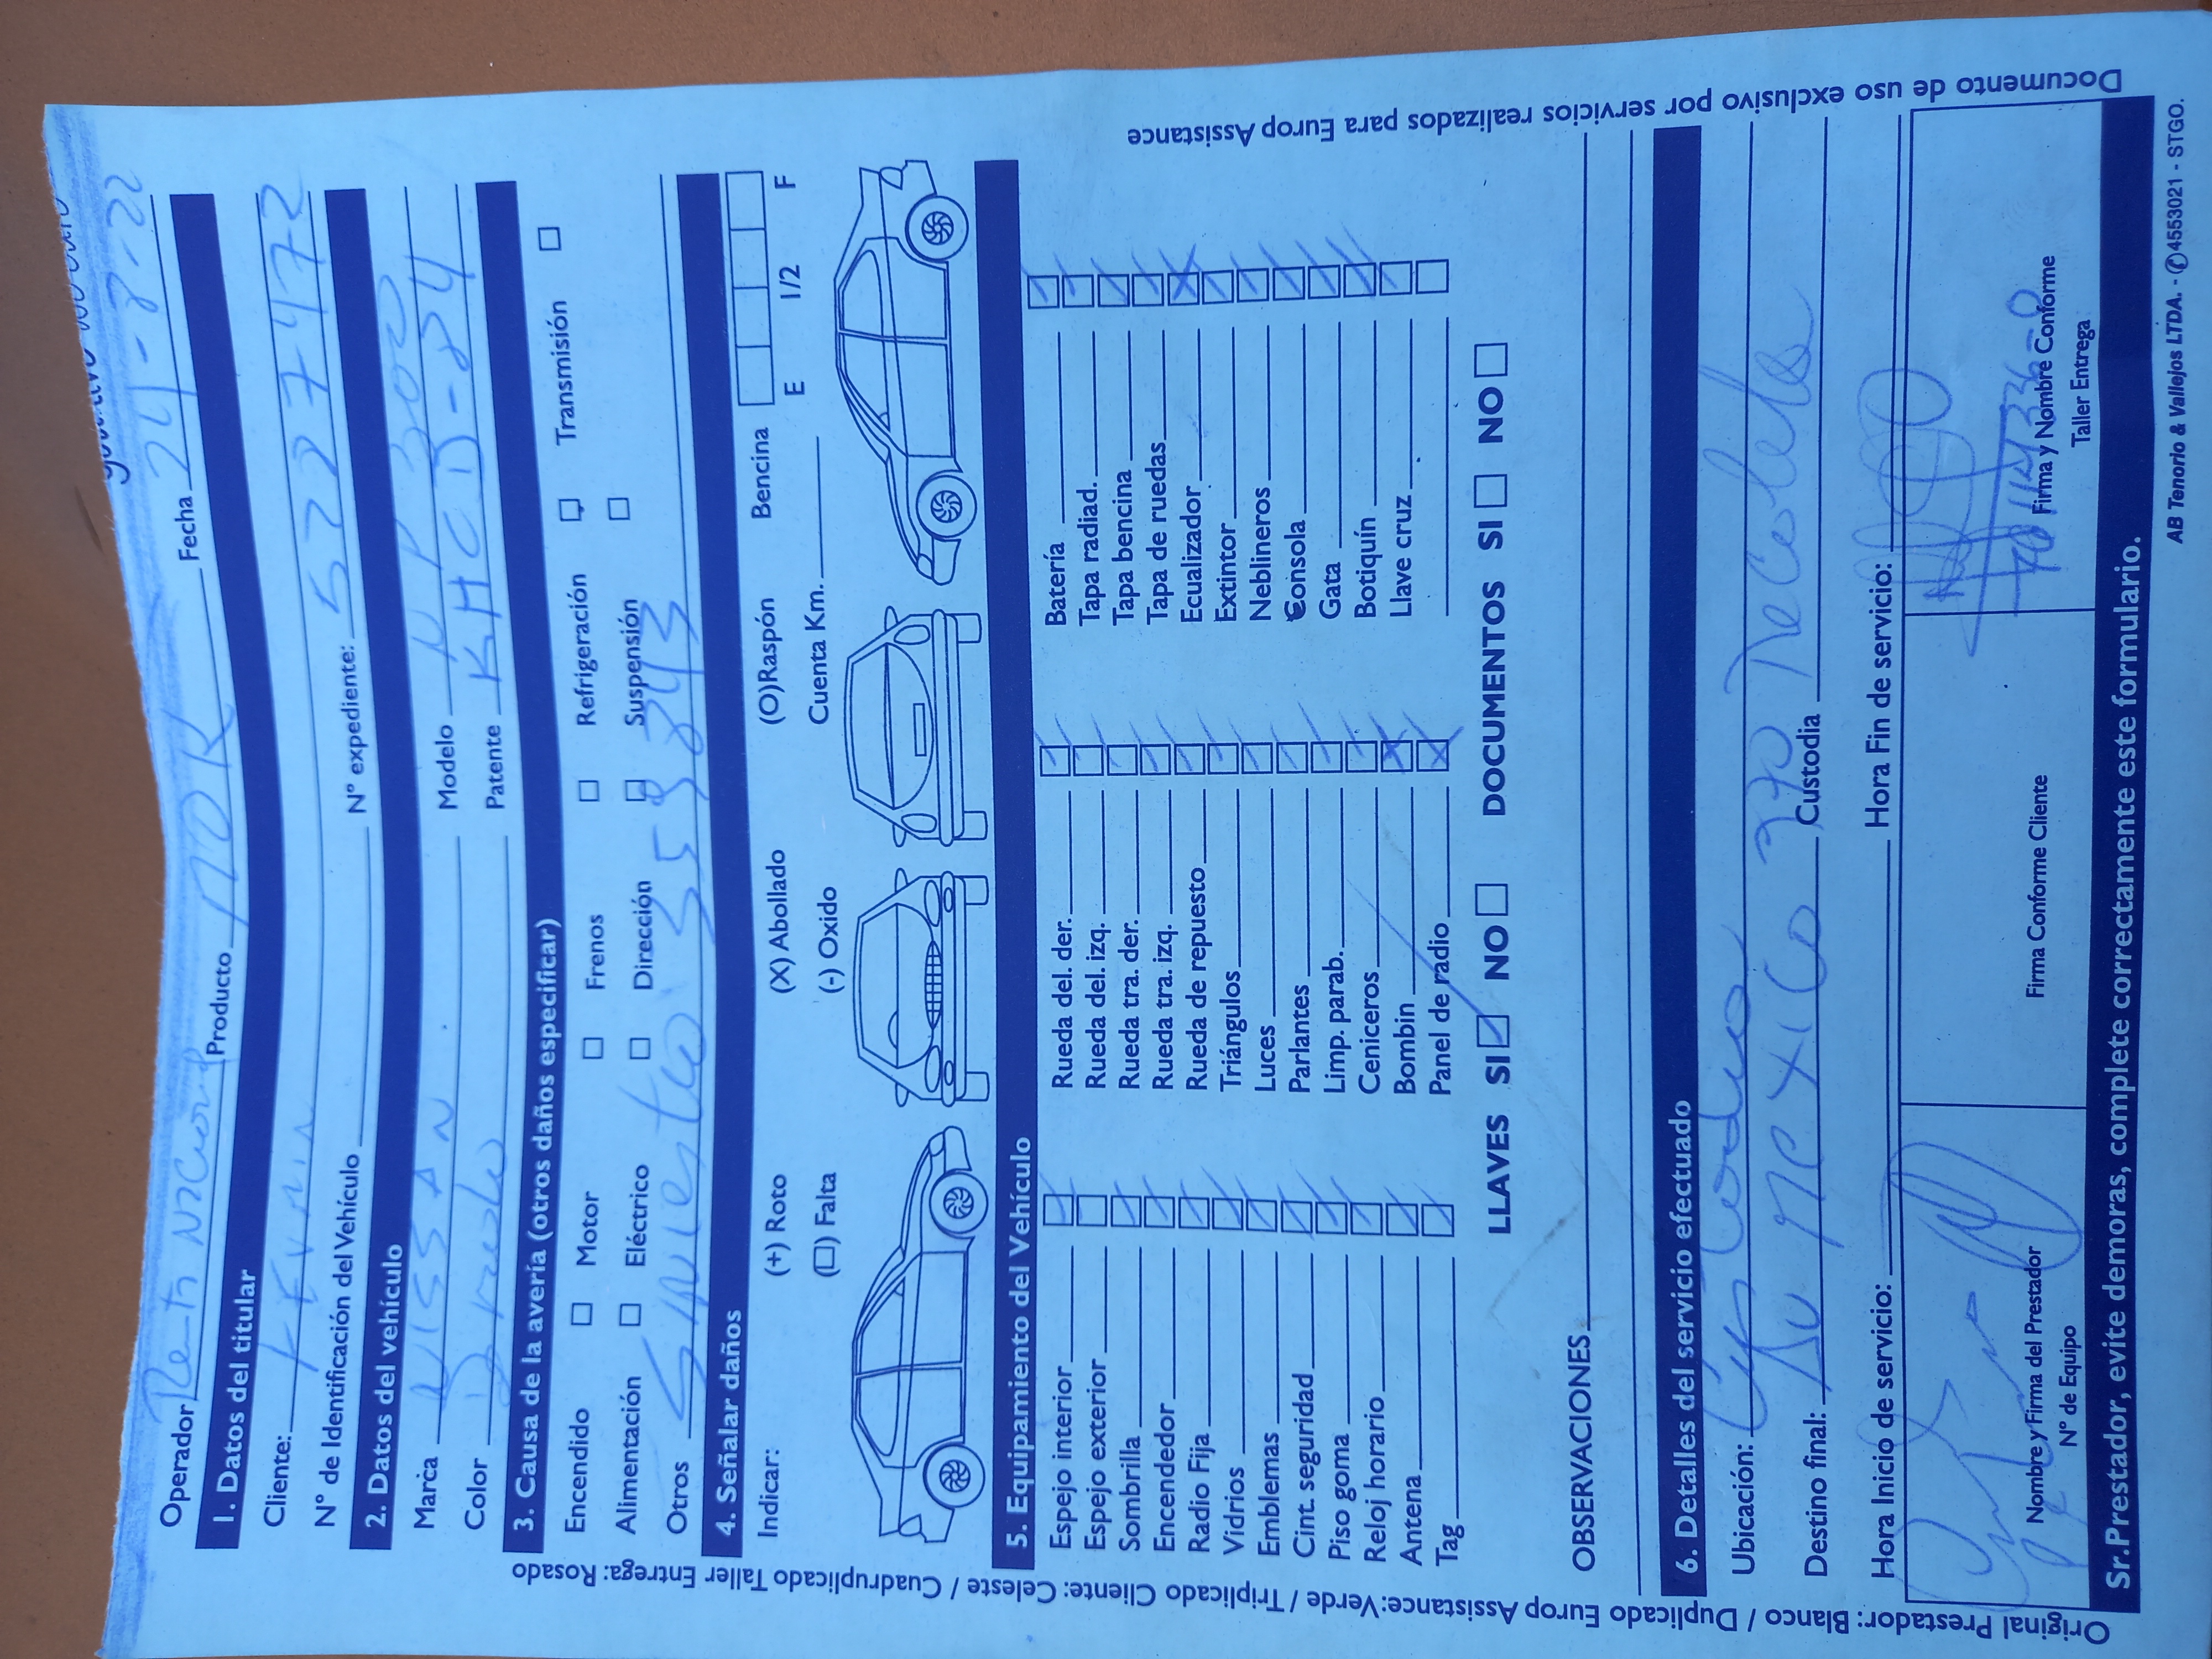 Operador Producto MOK Fecha 24-8-22
1. Datos del titular
Cliente: KEVIN
N° de Identificación del Vehículo N° expediente: 5227472
2. Datos del vehículo
Marca NISSAN Modelo NP300
Color Patente KHCD-84
3. Causa de la avería (otros daños especificar)
Encendido Motor Frenos Refrigeración Transmisión
Alimentación Eléctrico Dirección Suspensión
Otros Siniestro
4. Señalar daños
Indicar: (+) Roto (X) Abollado (O)Raspón Bencina
E 1/2 F
(□) Falta (-) Oxido Cuenta Km.
5. Equipamiento del Vehículo
Espejo interior Rueda del. der. Batería
Espejo exterior Rueda del. izq. Tapa radiad.
Sombrilla Rueda tra. der. Tapa bencina
Encendedor Rueda tra. izq. Tapa de ruedas
Radio Fija Rueda de repuesto Ecualizador
Vidrios Triángulos Extintor
Emblemas Luces Neblineros
Cint. seguridad Parlantes Consola
Piso goma Limp. parab. Gata
Reloj horario Ceniceros Botiquín
Antena Bombin Llave cruz
Tag Panel de radio
LLAVES SI NO DOCUMENTOS SI NO
OBSERVACIONES
6. Detalles del servicio efectuado
Ubicación:
Destino final: Av Mexico 370 Recoleta Custodia
Hora Inicio de servicio: Hora Fin de servicio:
Nombre y Firma del Prestador
N° de Equipo
Firma Conforme Cliente
Firma y Nombre Conforme
Taller Entrega
Sr.Prestador, evite demoras, complete correctamente este formulario.
AB Tenorio & Vallejos LTDA. - ✆4553021 - STGO.
Original Prestador: Blanco / Duplicado Europ Assistance:Verde / Triplicado Cliente: Celeste / Cuadruplicado Taller Entrega: Rosado
Documento de uso exclusivo por servicios realizados para Europ Assistance